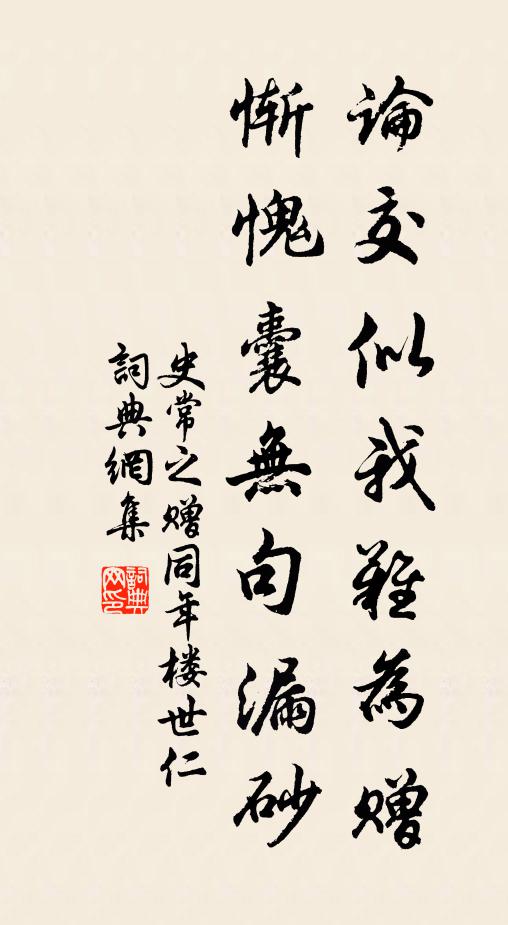 論交似我難為贈
慚愧囊無句漏砂
史常之赠同年楼世仁
詞典網集
詞典
网印